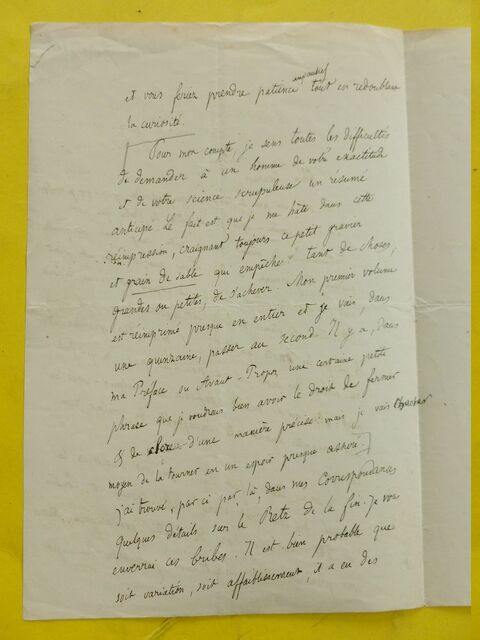 et vous feriez prendre patience aux autres tout en redoublant
la curiosité.
Pour mon compte, je sens toutes les difficultés
de demander à un homme de votre exactitude
et de votre science scrupuleuse un résumé
anticipé. Le fait est que je me hâte dans cette
réimpression, craignant toujours ce petit gravier
et grain de sable qui empêche tant de choses,
grandes ou petites, de s'achever. Mon premier volume
est réimprimé presque en entier et je vais, dans
une quinzaine, passer au second. Il y a, dans
ma Préface ou Avant-Propos, une certaine petite
phrase que je voudrais bien avoir le droit de fermer
& de clore d'une manière précise : mais je vais chercher
moyen de la tourner en un espoir presque assuré.
J'ai trouvé, par ci par là, dans mes Correspondances
quelques détails sur le Retz de la fin. Je vous
enverrai ces bribes. Il est bien probable que
soit variation, soit affaiblissement, il a eu des